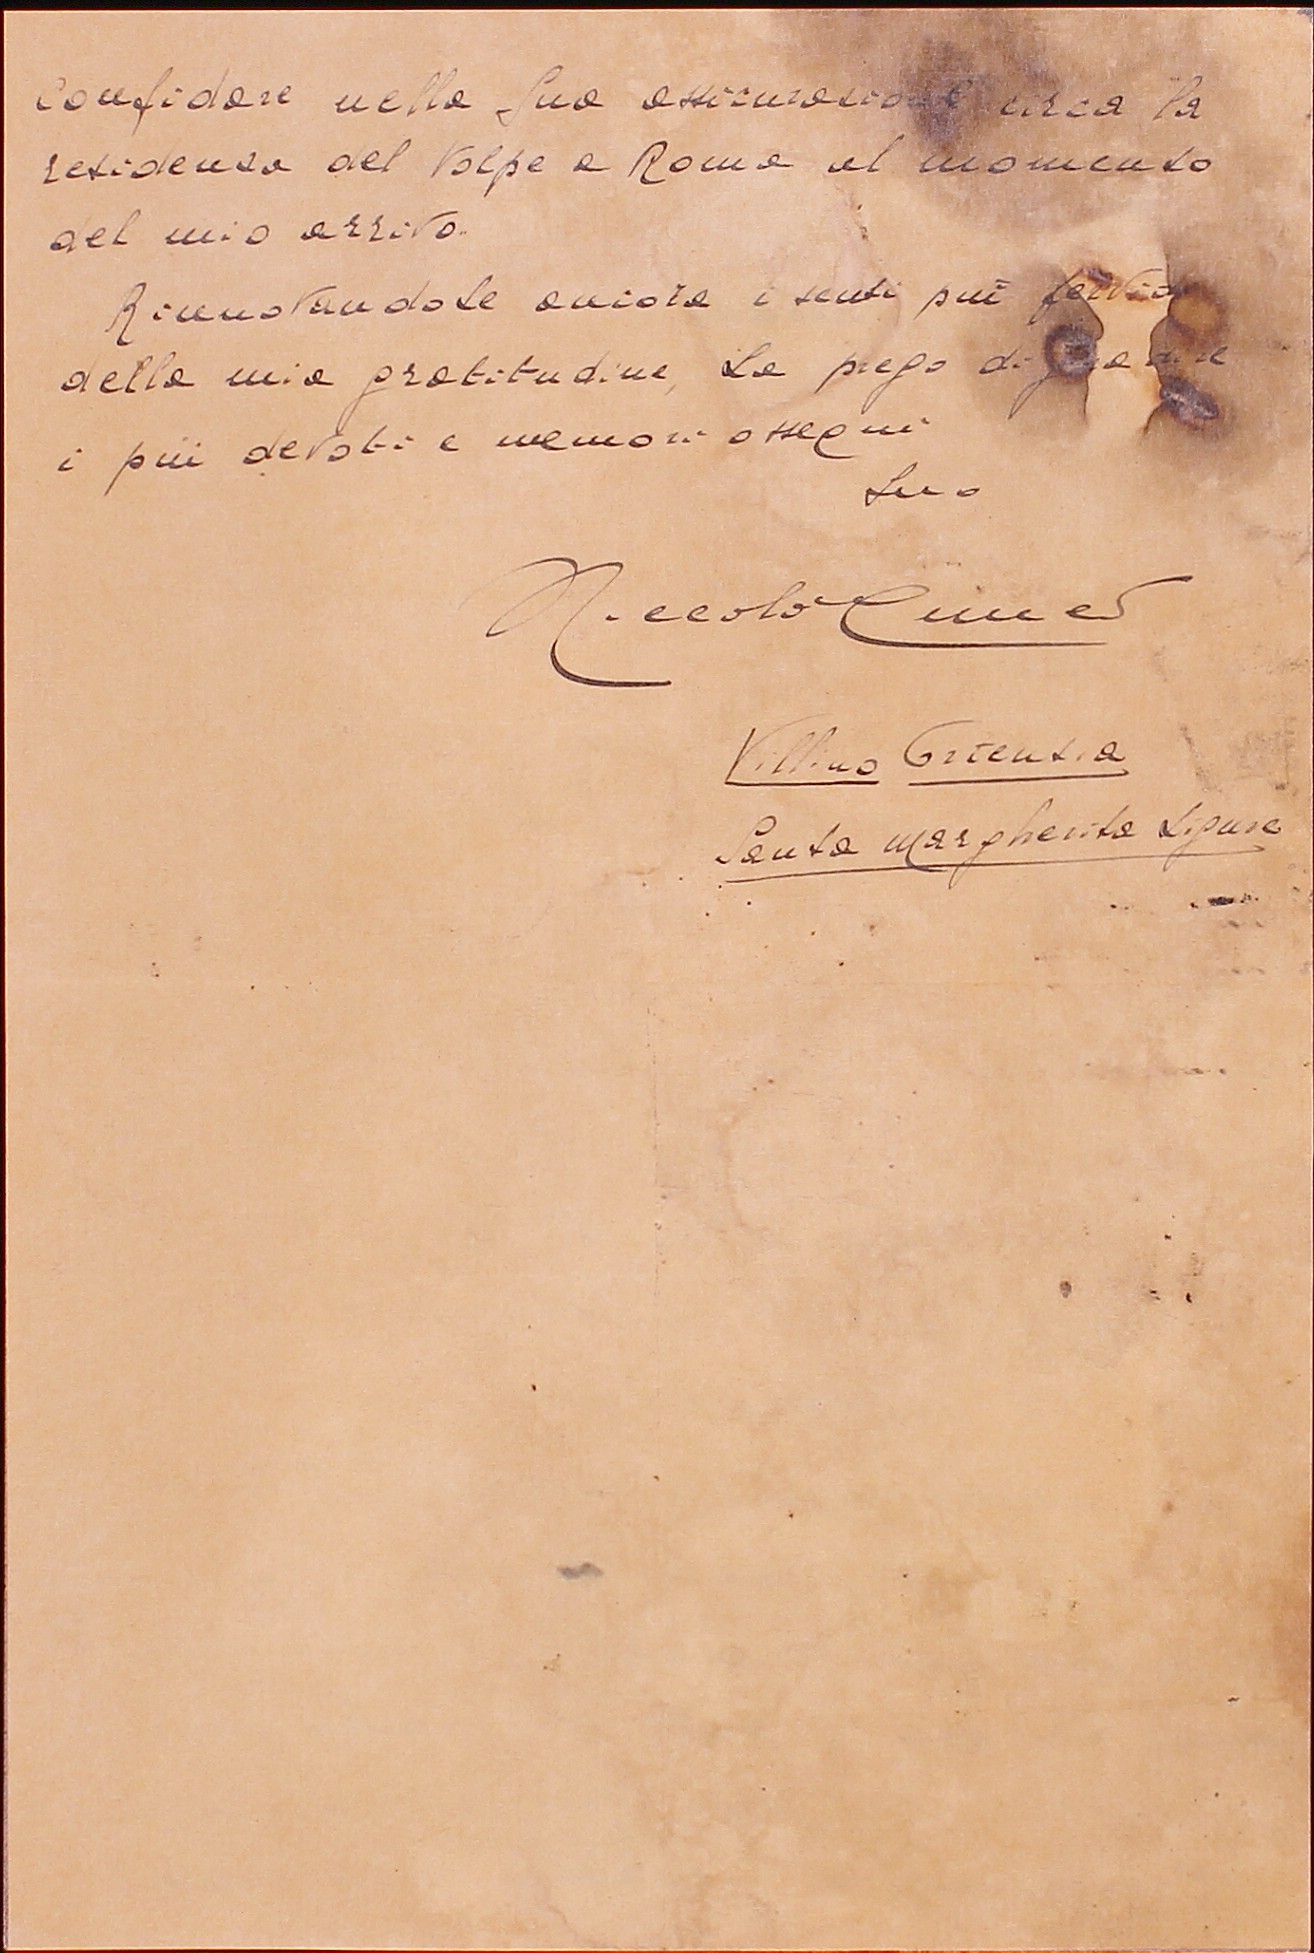 confidare nella Sua assicurazione circa la
residenza del Volpe a Roma al momento
del mio arrivo.
Rinnovandole ancora i sensi più fervidi
della mia gratitudine, La prego di gradire
i più devoti e memori ossequi
Suo
Niccolò Cuneo
Villino Ortensia
Santa Margherita Ligure